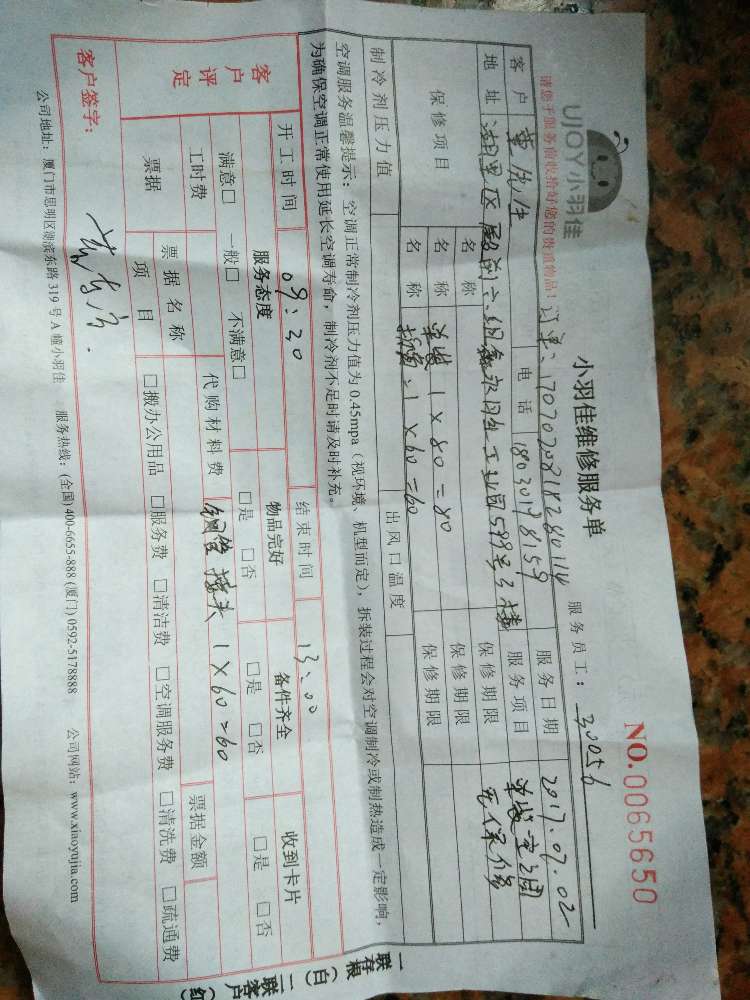 UJOY小羽佳
小羽佳维修服务单
NO.0065650
请您于服务前收拾好您的贵重物品!
服务员工: 30056
客户
电话 18030198159
服务日期 2017.07.02
地址 湖里区
599号3楼
服务项目
空调
保修项目
名称
保修期限 无保修
名称 1×80=80
保修期限
名称 1×60=60
保修期限
制冷剂压力值
出风口温度
空调服务温馨提示: 空调正常制冷剂压力值为 0.45mpa (视环境、机型而定), 拆装过程会对空调制冷或制热造成一定影响,
为确保空调正常使用延长空调寿命, 制冷剂不足时请及时补充。
开工时间 09:30
结束时间 13:00
客户评定
服务态度
物品完好
备件齐全
收到卡片
满意□ 一般□ 不满意□
□是 □否
□是 □否
□是 □否
工时费
代购材料费 铜管接头 1×60=60
票据
票据名称
票据金额
项目
□搬办公用品 □服务费 □清洁费 □空调服务费 □清洗费 □疏通费
客户签字:
公司地址: 厦门市思明区湖滨东路 319 号 A 幢小羽佳 服务热线: (全国) 400-6655-888 (厦门) 0592-5178888 公司网站: www.xiaoyujia.com
一联存根 (白) 二联客户 (红)